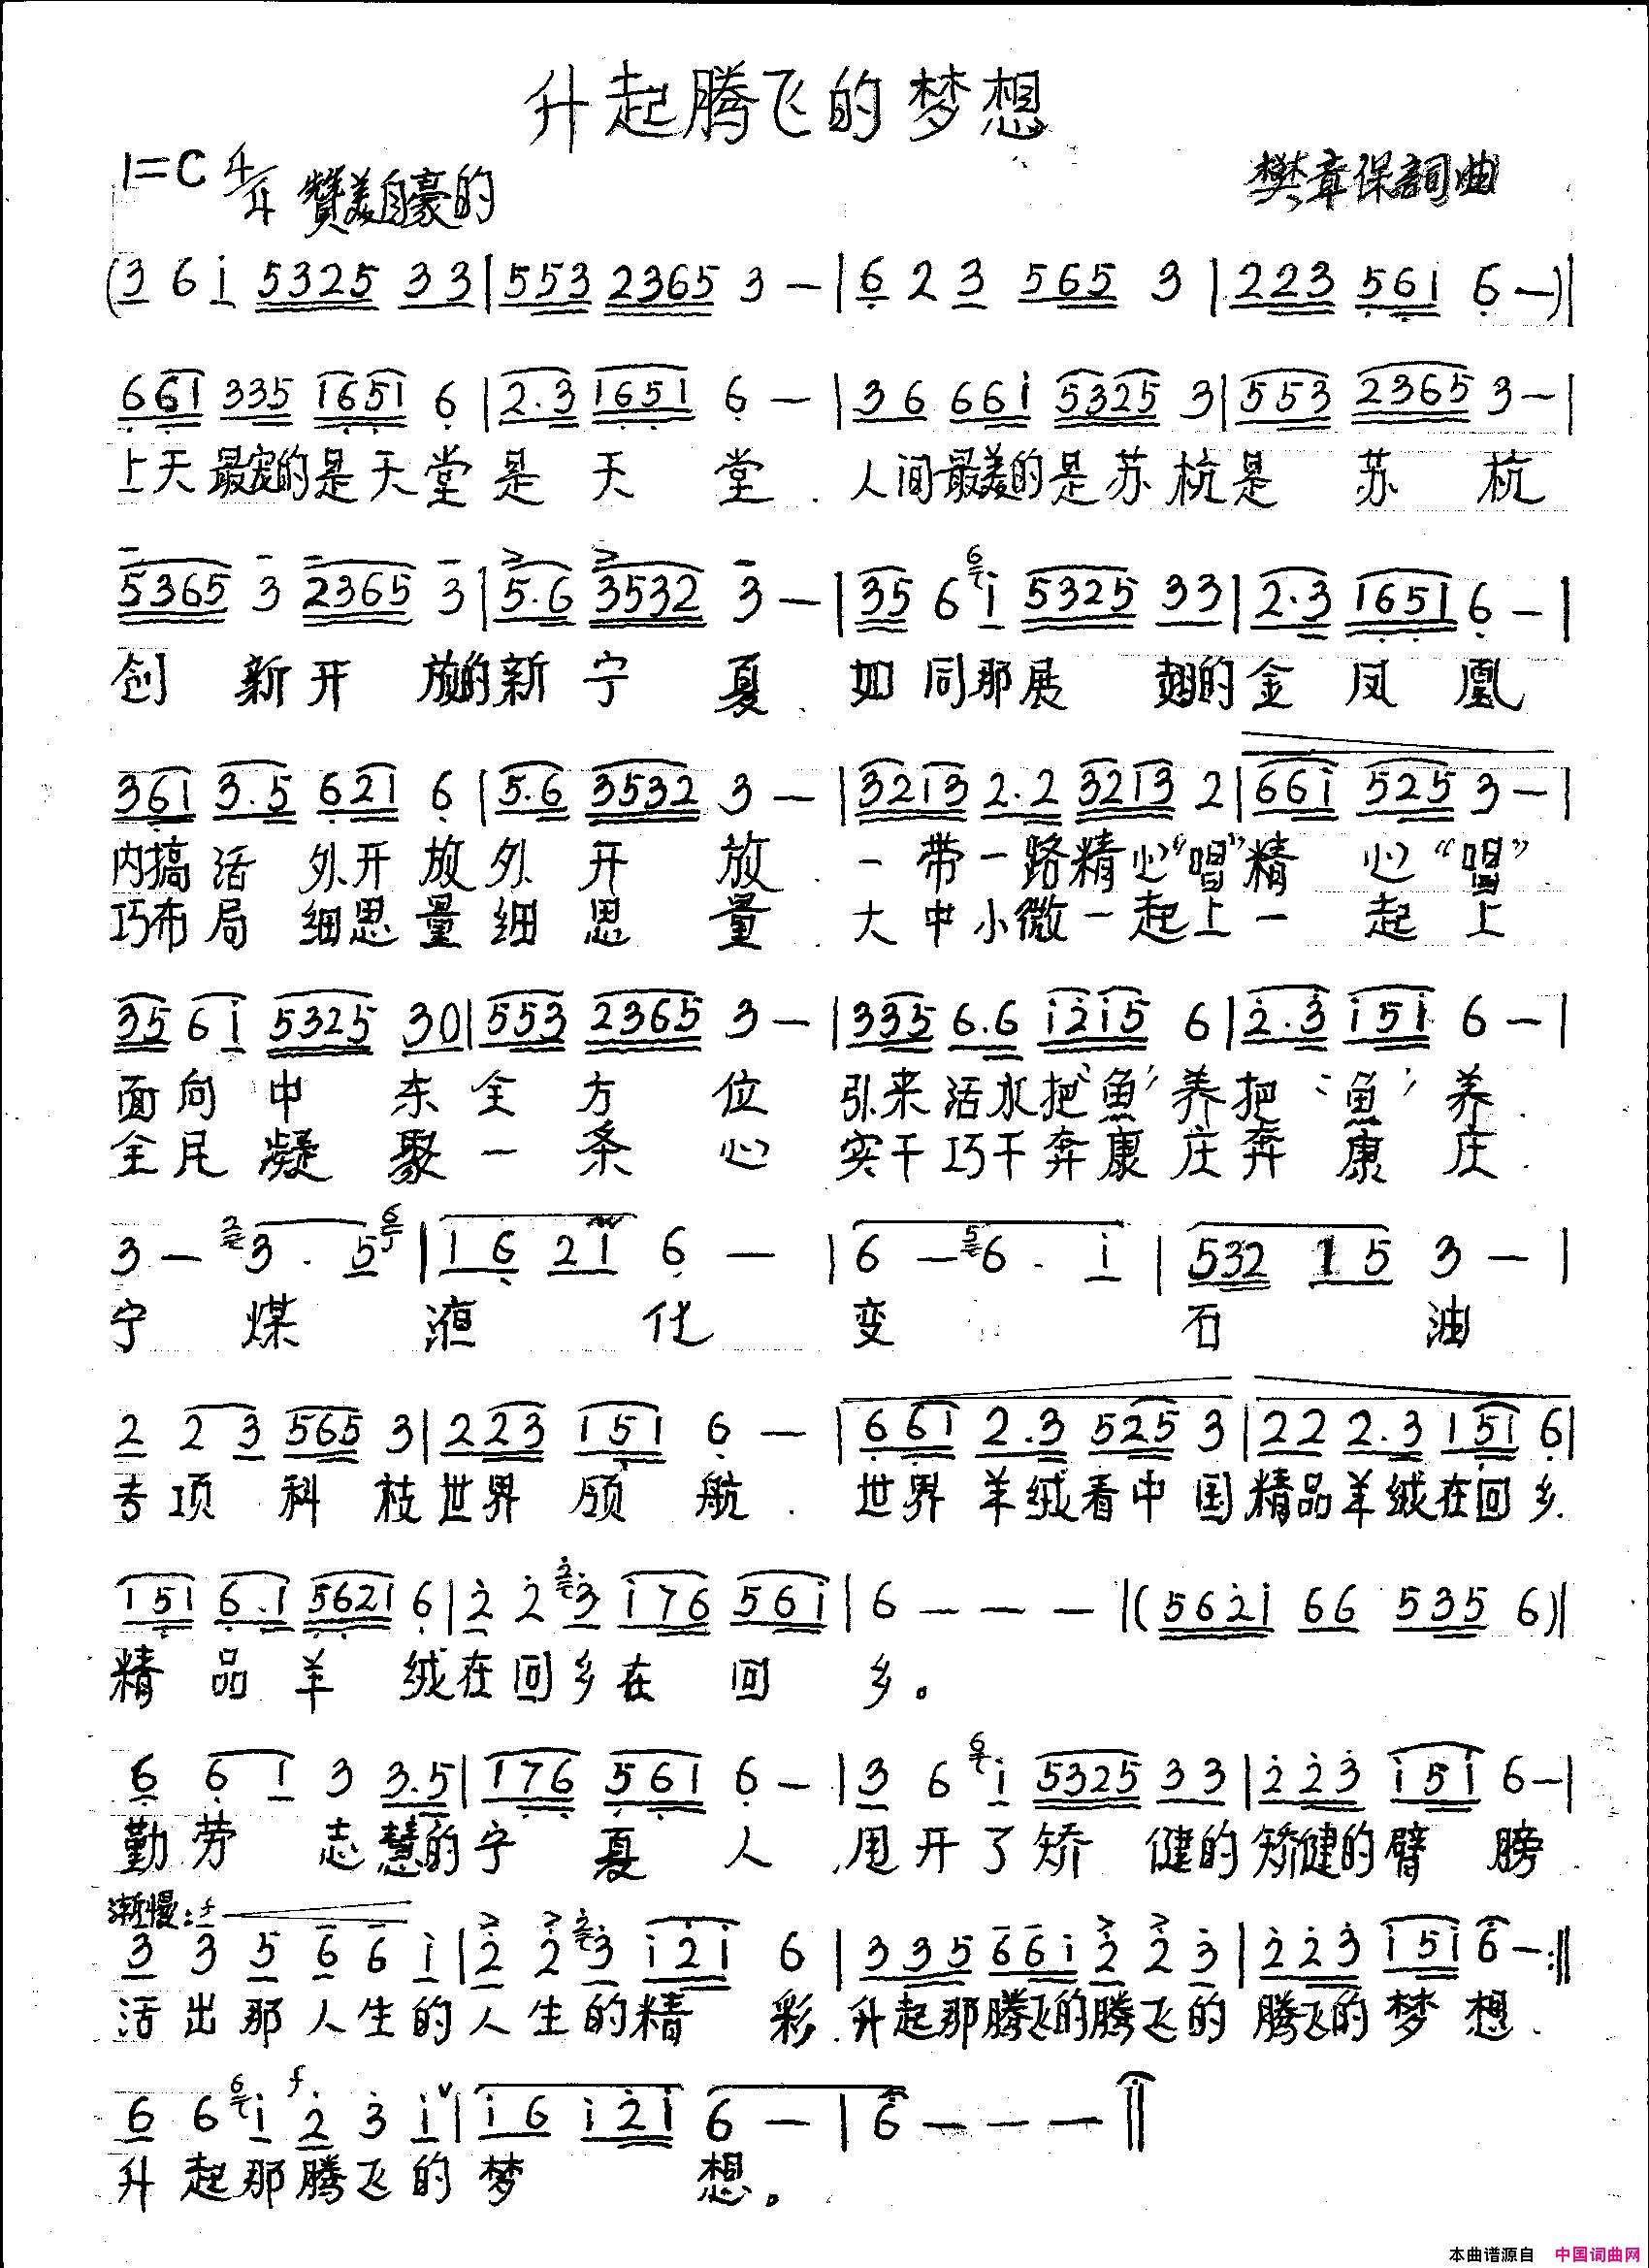 升起腾飞的梦想
1=C 4/4 赞美自豪的 樊章保詞曲
(3 6 i 5325 33|553 2365 3 —|6 2 3 565 3|223 561 6 —)|
661 335 1651 6|2.3 1651 6 —|36 661 5325 3|553 2365 3 —|
上天最宠的是天堂是天堂.人间最美的是苏杭是苏杭
5365 3 2365 3|5.6 3532 3 —|35 6 6 i 5325 33|2.3 1651 6 —|
创新开放的新宁夏.如同那展翅的金凤凰
361 3.5 621 6|5.6 3532 3 —|3213 2.2 3213 2|661 525 3 —|
内搞活外开放外开放.一带一路精心“唱”精心“唱”
巧布局细思量细思量.大中小微一起上一起上
35 6 i 5325 30|553 2365 3 —|335 6.6 i2i5 6|2.3 i5i 6 —|
面向中东全方位引来活水把‘魚’养把‘魚’养.
全民凝聚一条心实干巧干奔康庄奔康庄.
3 — 2 3 . 5 6|16 21 6 —|6 — 5 6 . i|532 15 3 —|
宁煤液化变石油
2 2 3 565 3|223 151 6 —|661 2.3 525 3|22 2.3 151 6|
专项科枝世界领航.世界羊绒看中国精品羊绒在回乡.
151 6.1 5621 6|2 2 2 3 i76 56i|6 — — —|(562i 66 535 6)|
精品羊绒在回乡在回乡。
6 6 1 3 3.5|176 561 6 —|3 6 6 i 5325 33|223 i5i 6 —|
勤劳志慧的宁夏人.甩开了矫健的矫健的臂膀.
渐慢: f
3 3 5 6 6 i|2 2 2 3 i2i 6|335 66i 2 2 3|223 i5i 6 — :||
活出那人生的人生的精彩.升起那腾飞的腾飞的腾飞的梦想.
6 6 6 i f 2 3 i v|i6 i2i 6 —|6 — — — ||
升起那腾飞的梦想。
本曲谱源自 中国词曲网